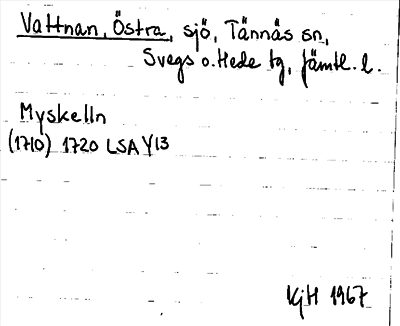 Vattnan, Östra, sjö, Tännäs sn,
Svegs o. Hede tg, Jämtl. l.
Myskelln
(1710) 1720 LSA Y13
KjH 1967